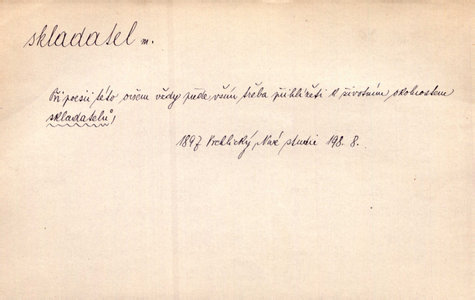 skladatel m.
Při poesii této ovšem vždy přede vším třeba přihlížeti k životním okolnostem
skladatelů,
1897 Vrchlický, Nové studie 198. 8.